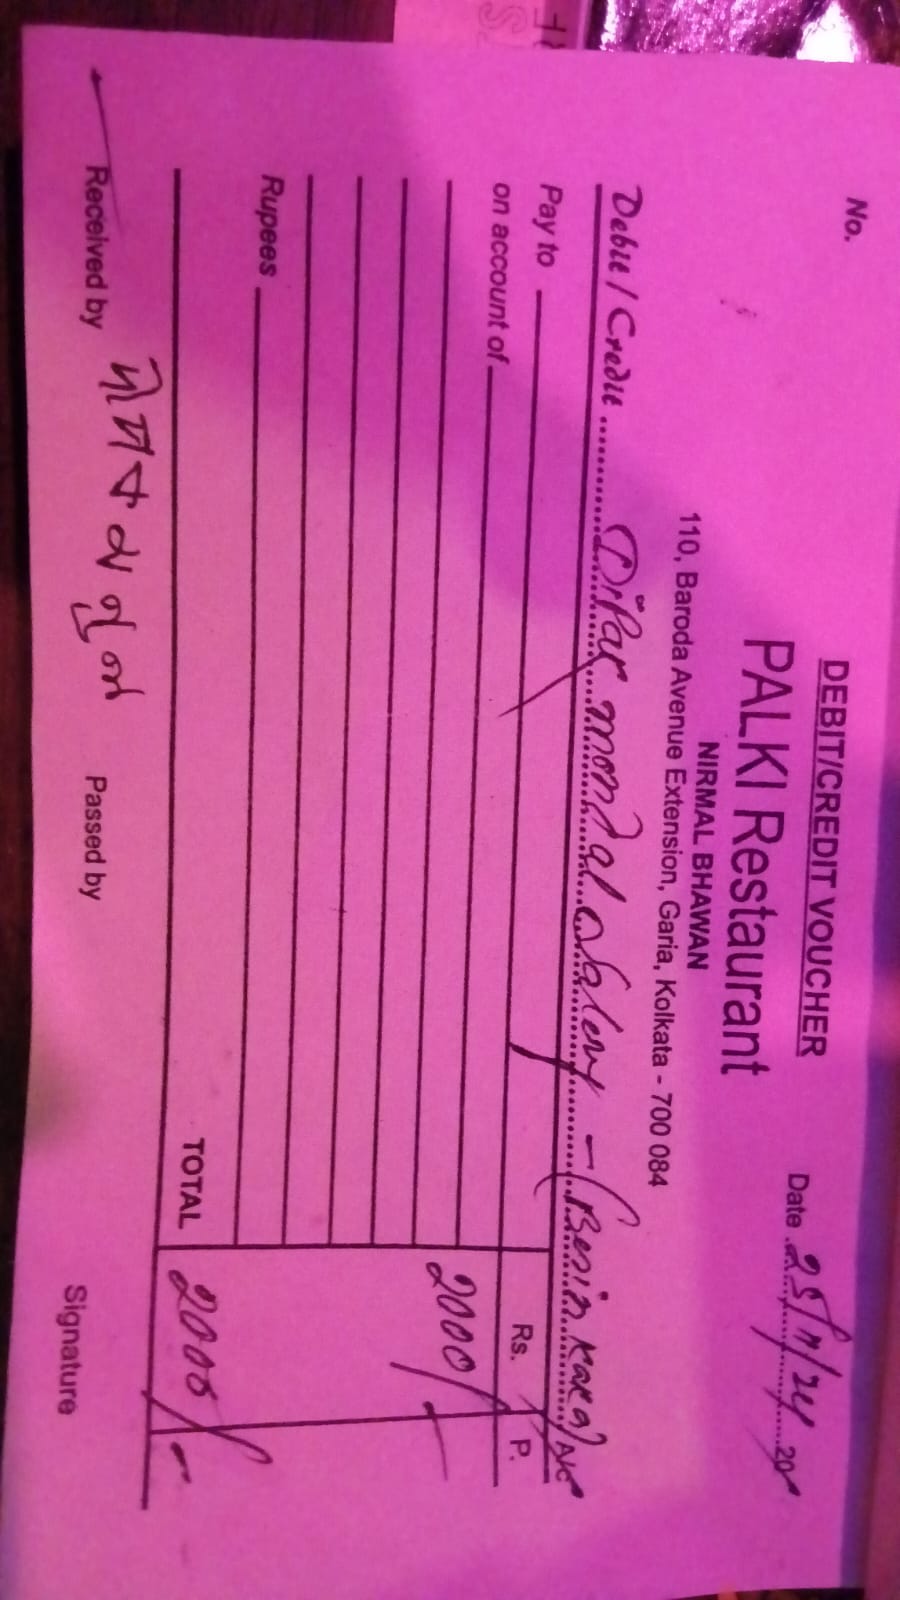 DEBIT/CREDIT VOUCHER
No.
PALKI Restaurant
Date
NIRMAL BHAWAN
110, Baroda Avenue Extension, Garia, Kolkata - 700 084
Debit / Credit Dipak mondal Salery - (Besin kaka) A/c
Pay to
Rs. P.
on account of
2000/-
Rupees
TOTAL 2000/-
Received by দীপক মন্ডল Passed by Signature